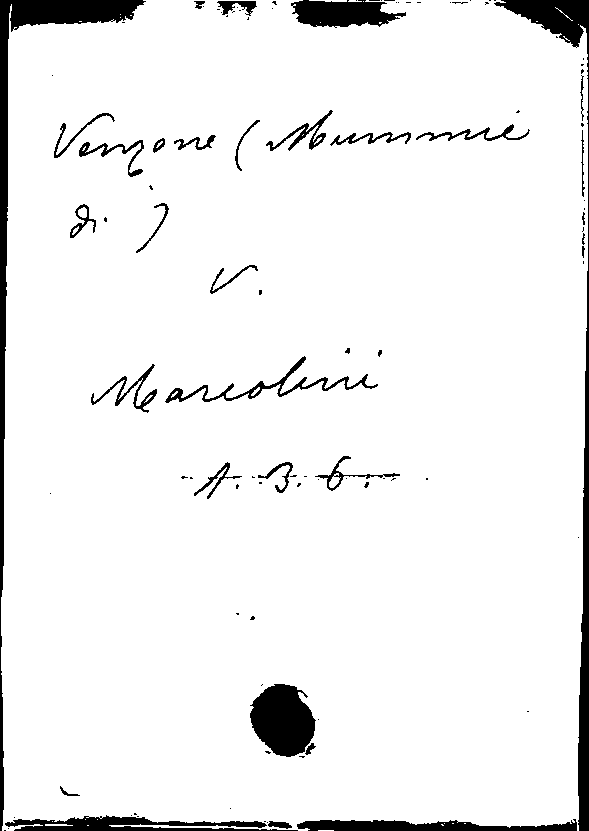 Venzone (Mummie
di)
V.
Marcolini
A. 3. 6.